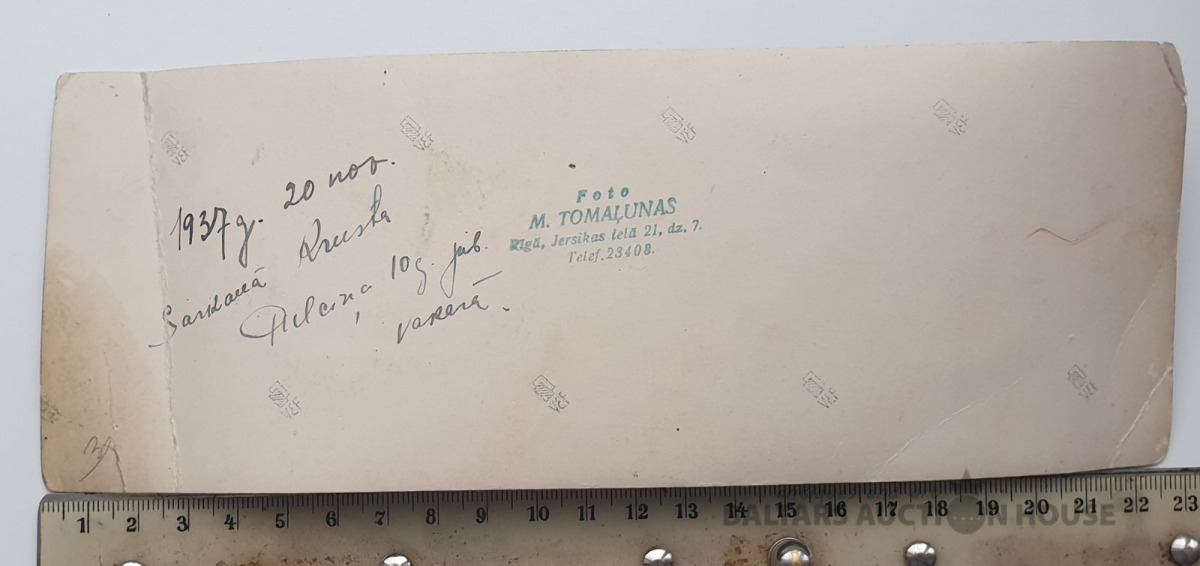 1937g. 20 nov.
Sarkanā Krusta
Pulciņa 10g. jub.
vakarā.
Foto
M. TOMAĻUNAS
Rīgā, Jersikas ielā 21, dz. 7.
Telef. 23408.
VEF
VEF
VEF
VEF
VEF
VEF
VEF
VEF
1 2 3 4 5 6 7 8 9 10 11 12 13 14 15 16 17 18 19 20 21 22 23
BALTARS AUCTION HOUSE